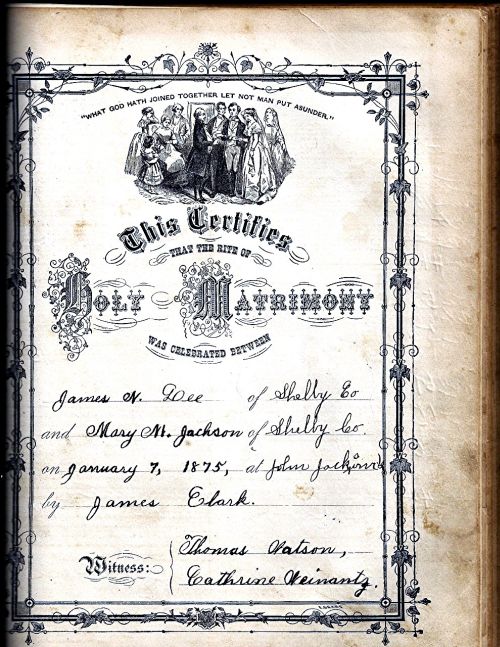 "WHAT GOD HATH JOINED TOGETHER LET NOT MAN PUT ASUNDER."
This Certifies
THAT THE RITE OF
HOLY MATRIMONY
WAS CELEBRATED BETWEEN
James N. Dee of Shelby Co
and Mary M. Jackson of Shelby Co.
on January 7, 1875, at John Jackson's
by James Clark.
Witness:
Thomas Watson,
Cathrine Weinantz.